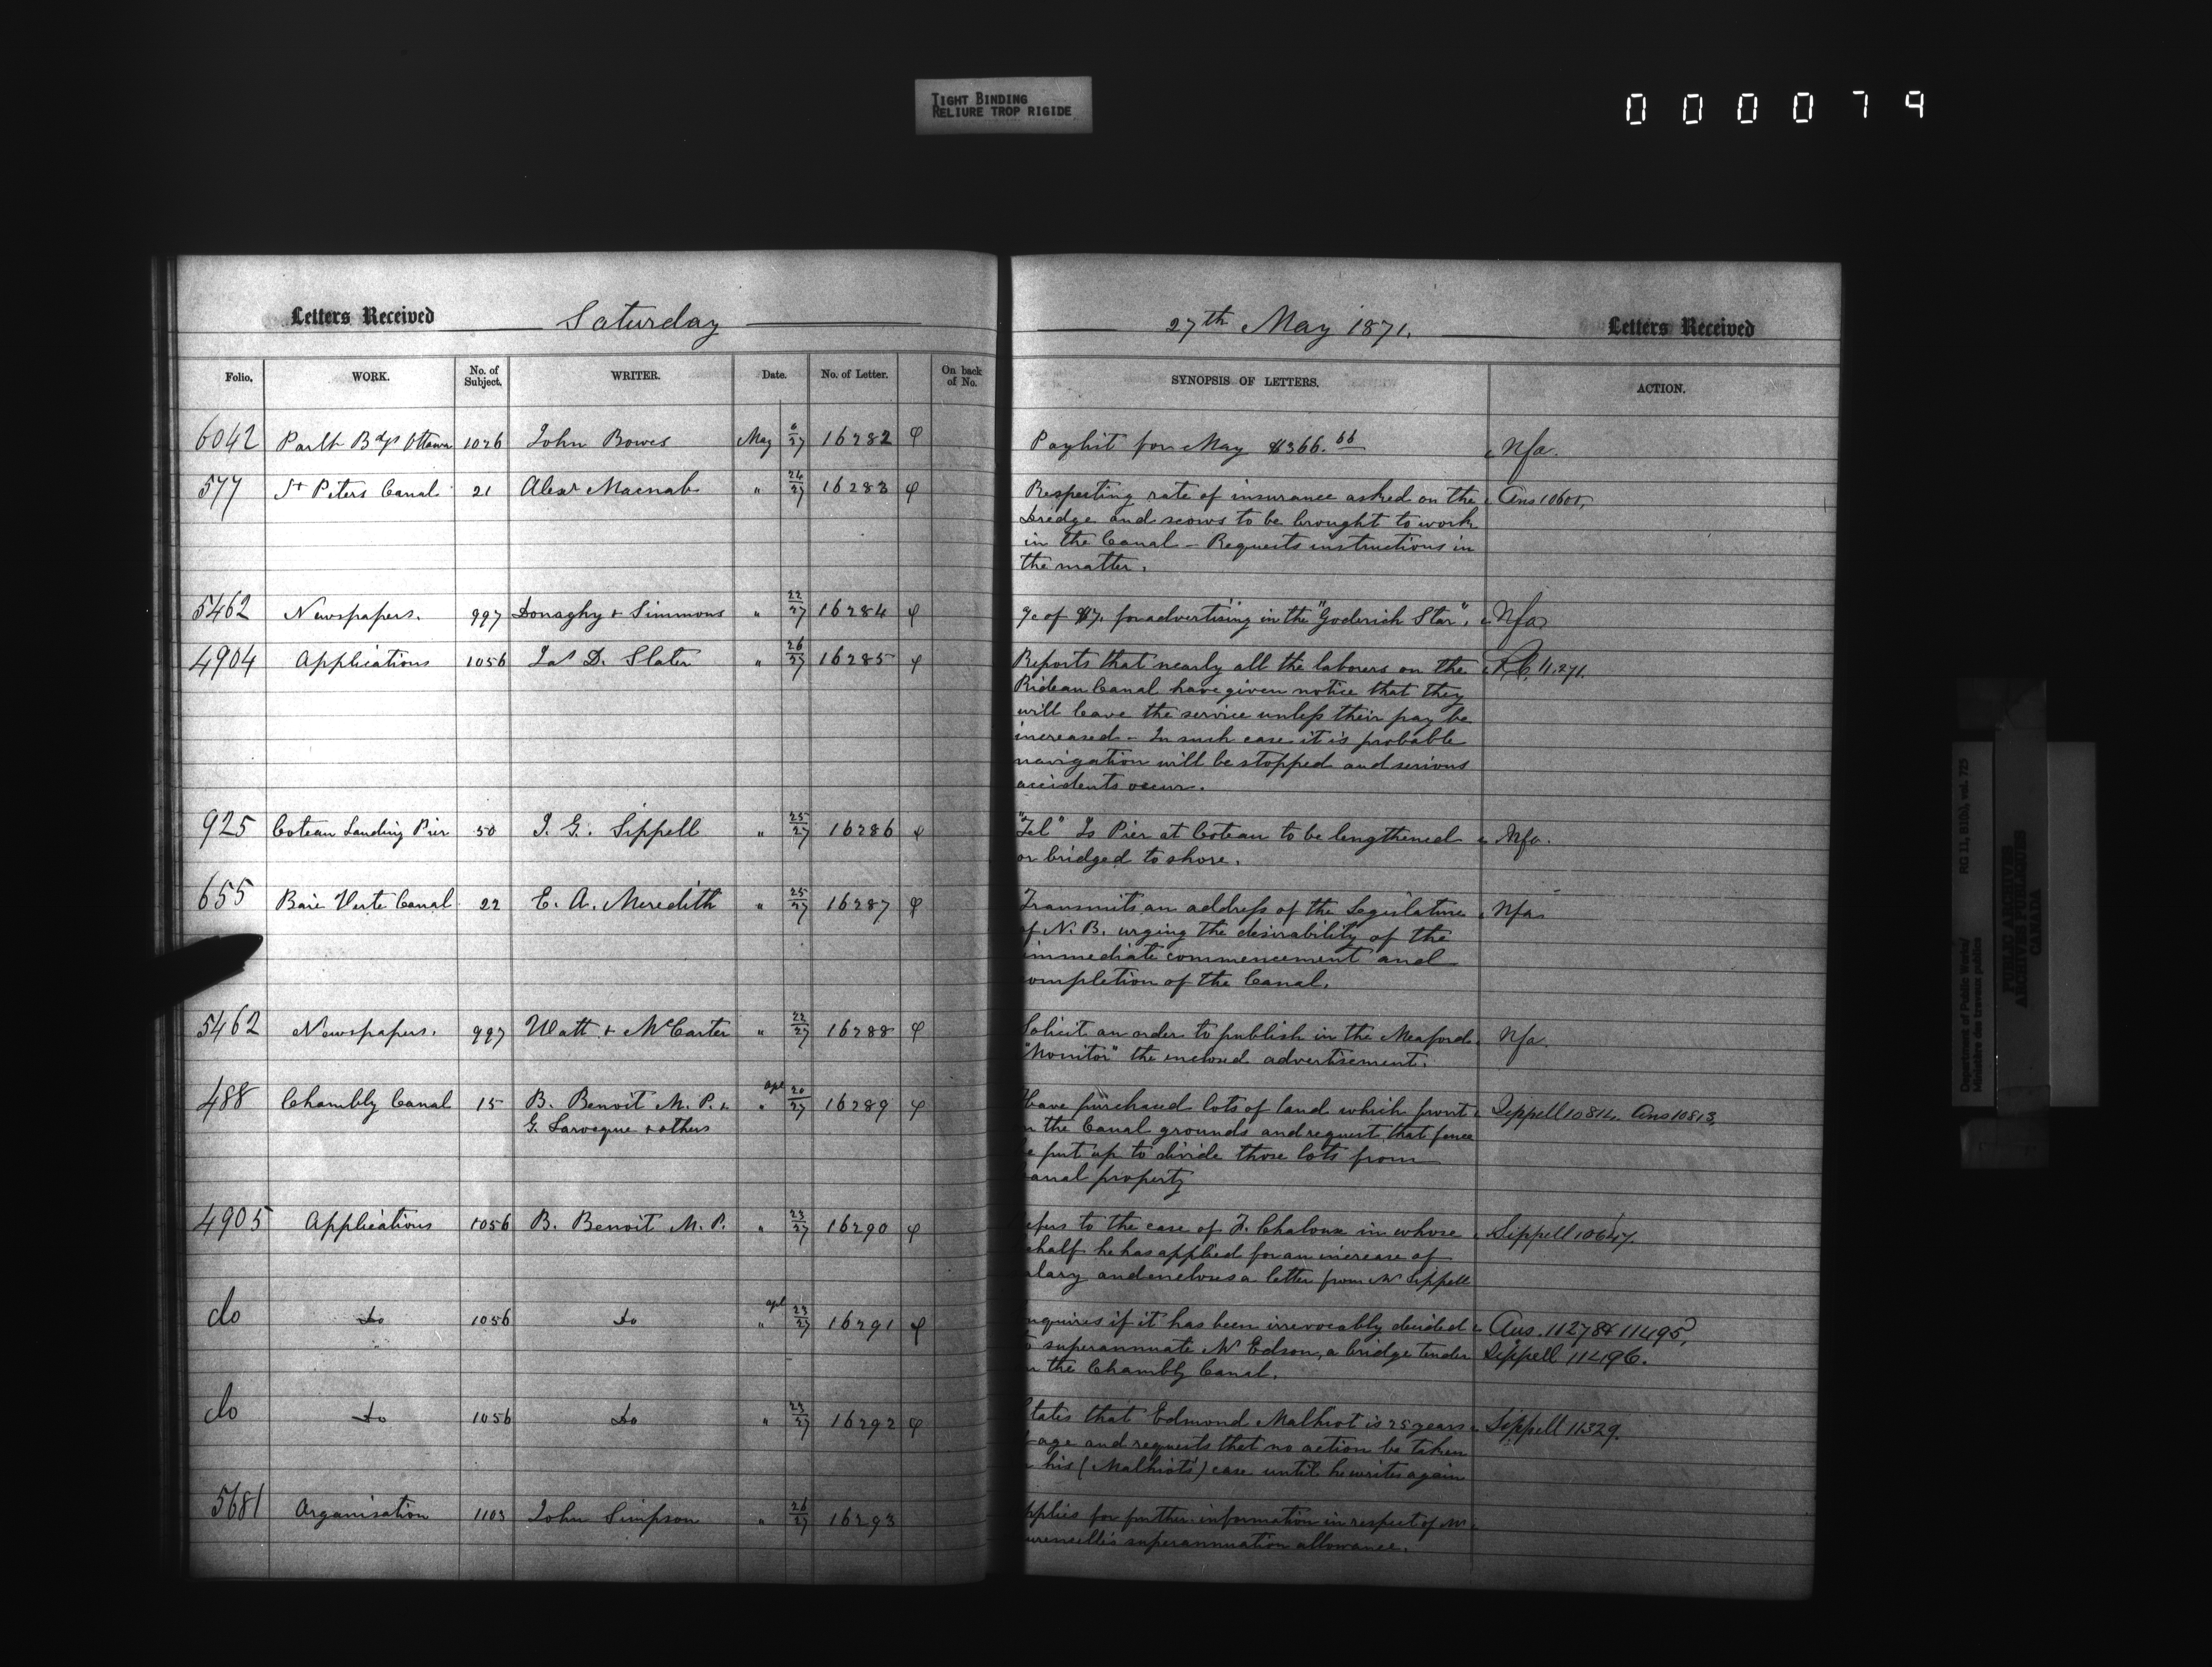 TIGHT BINDING
RELIURE TROP RIGIDE
000079
Letters Received Saturday
27th May 1871. Letters Received
Folio. WORK. No. of Subject. WRITER. Date. No. of Letter. On back of No. SYNOPSIS OF LETTERS. ACTION.
6042 Parlt Bdgs Ottawa 1026 John Bowes May 6/27 16282 φ Paylist for May $366.66 Nfa.
577 St Peters Canal 21 Alexr Macnab " 24/27 16283 φ Respecting rate of insurance asked on the Ans 10605,
dredge and scows to be brought to work
in the Canal - Requests instructions in
the matter.
5462 Newspapers. 997 Donaghy & Simmons " 22/27 16284 φ of $7. for advertising in the "Goderich Star". Nfa
4904 Applications 1056 Jas D. Slater " 26/27 16285 φ Reports that nearly all the laborers on the 11,271.
Rideau Canal have given notice that they
will leave the service unless their pay be
increased - In such case it is probable
navigation will be stopped and serious
accidents occur.
925 Coteau Landing Pier 50 J. G. Sippell " 25/27 16286 φ "Tel" Is Pier at Coteau to be lengthened Nfa.
or bridged to shore.
655 Baie Verte Canal 22 E. A. Meredith " 25/27 16287 φ Transmits an address of the Legislature Nfa
of N. B. urging the desirability of the
immediate commencement and
ompletion of the Canal.
5462 Newspapers. 997 Watt & McCarter " 22/27 16288 φ Solicit an order to publish in the Meaford Nfa.
"Monitor" the enclosed advertisement.
488 Chambly Canal 15 B. Benoit M. P. & apl " 20/27 16289 φ Have purchased lots of land which front Sippell 10814. Ans 10813,
G. Larocque & others n the Canal grounds and request that fence
e put up to divide those lots from
anal property
4905 Applications 1056 B. Benoit M. P. " 23/27 16290 φ efers to the case of F. Chaloux in whose Sippell 10647.
ehalf he has applied for an increase of
alary and encloses a letter from Mr Sippell
do do 1056 do apl " 23/27 16291 φ nquires if it has been irrevocably decided Ans. 11278 & 11495,
o superannuate Mr Edson, a bridge tender Sippell 11496.
n the Chambly Canal.
do do 1056 do " 23/27 16292 φ tates that Edmond Malhiot is 25 years Sippell 11329.
f age and requests that no action be taken
n his (Malhiot's) case until he writes again
5681 Organisation 1103 John Simpson " 26/27 16293 pplies for further information in respect of Mr
urencelle's superannuation allowance.
Department of Public Works/
Ministère des travaux publics
RG 11, B1(b), vol. 725
PUBLIC ARCHIVES
ARCHIVES PUBLIQUES
CANADA